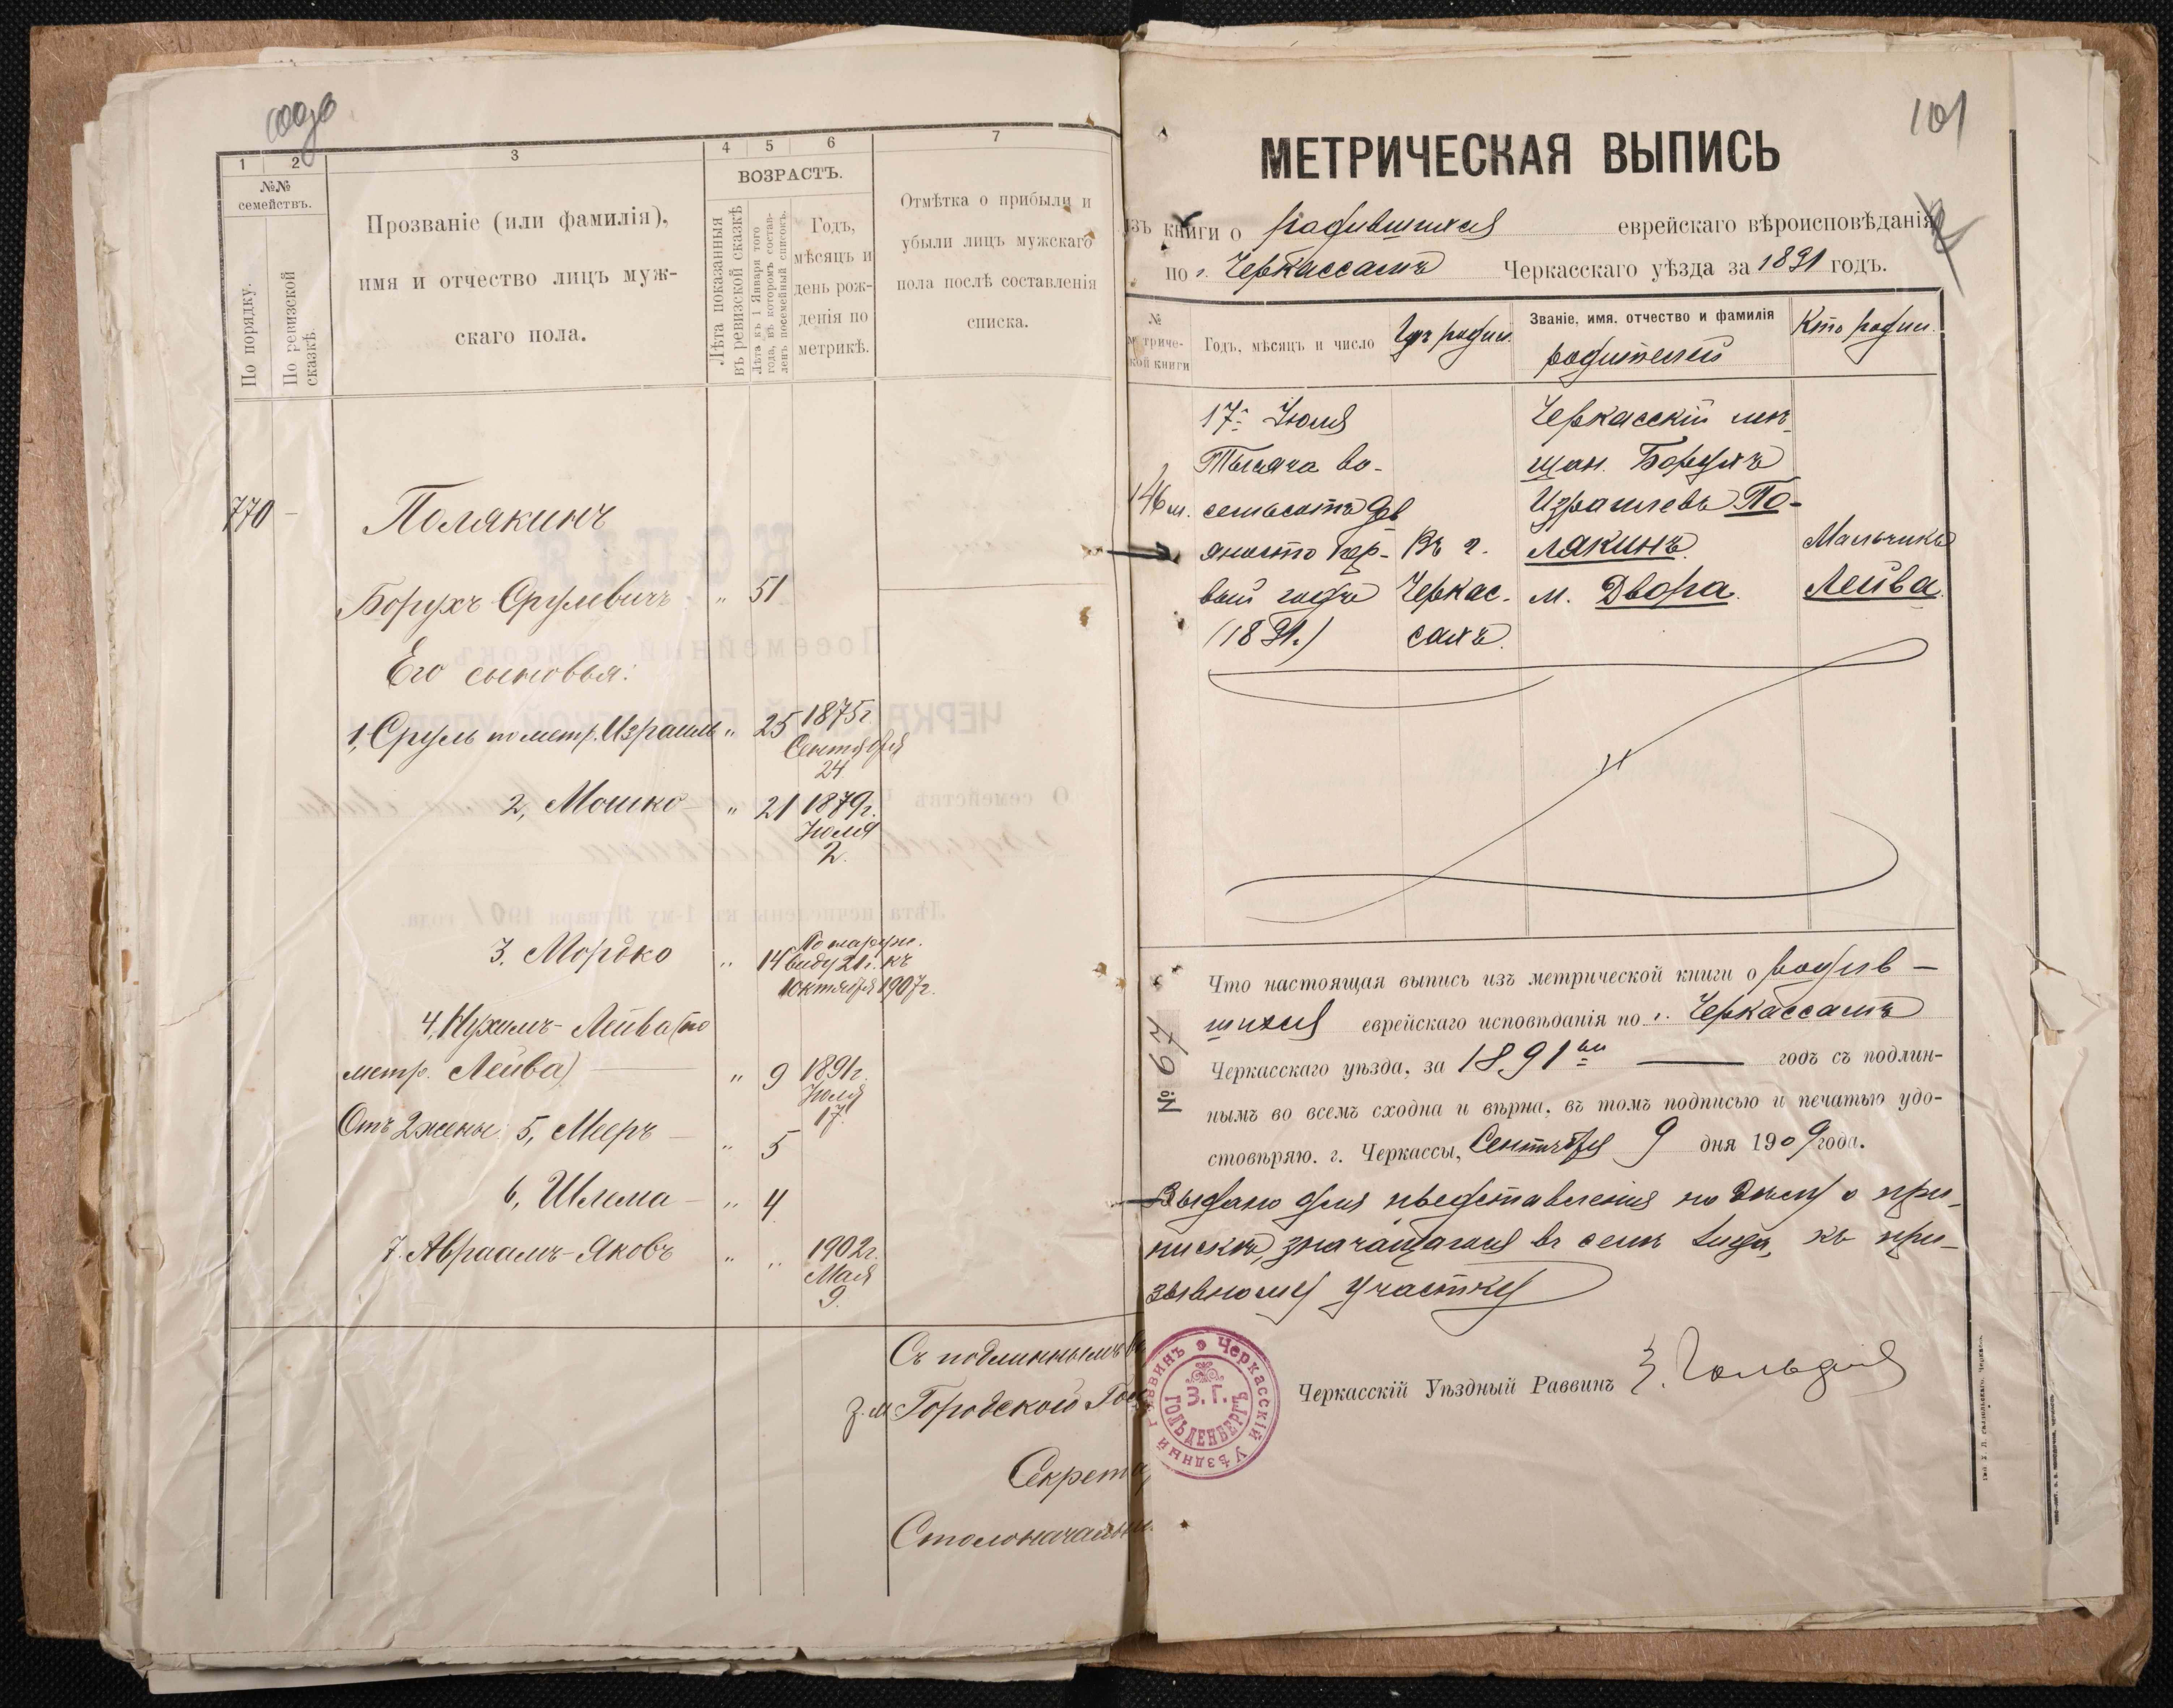 1
2
3
4
5
6
7
№№
семействъ.
По порядку.
По ревизской
сказкѣ.
Прозваніе (или фамилія),
имя и отчество лицъ муж-
скаго пола.
ВОЗРАСТЪ.
Лѣта показанныя
въ ревизской сказкѣ
Лѣта къ 1 Января того
года, въ которомъ состав-
ленъ посемейный списокъ.
Годъ,
мѣсяцъ и
день рож-
денія по
метрикѣ.
Отмѣтка о прибыли и
убыли лицъ мужскаго
пола послѣ составленія
списка.
770 -
Полякинъ
Борухъ Срулевичъ „ 51
Его сыновья:
1, Сруль по метр. Израиль „ 25 1875г.
Сентября
24
2, Мошко „ 21 1879г.
Іюля
2.
3. Мордко „ 14 По наружн.
виду 21 г. къ
1 октября 1907г.
4, Нухимъ-Лейва (по
метр. Лейва) „ 9 1891г.
Іюля
17.
Отъ 2 жены: 5, Мееръ „ 5
6, Шлема „ 4
7. Авраамъ-Яковъ „ „ 1902г.
Мая
9.
Съ подлиннымъ
з. м. Городской
Секрета
Столоначальн.
101
МЕТРИЧЕСКАЯ ВЫПИСЬ
изъ книги о родившихся еврейскаго вѣроисповѣданія
по г. Черкассамъ Черкасскаго уѣзда за 1891 годъ.
№
метриче-
ской книги
Годъ, мѣсяцъ и число
Гдѣ родил.
Званіе, имя, отчество и фамилія
родителей
Кто родил.
146 м.
17- Іюля
Тысяча во-
семьсотъ дев
яносто пер-
вый годъ
(1891.)
Въ г.
Черкас-
сахъ.
Черкасскій мѣ-
щан. Борухъ
Израилевъ По-
лякинъ.
м. Двора.
Мальчикъ
Лейва.
№ 67
Что настоящая выпись изъ метрической книги о родив-
шихся еврейскаго исповѣданія по г. Черкассамъ
Черкасскаго уѣзда, за 1891 ый годъ съ подлин-
нымъ во всемъ сходна и вѣрна, въ томъ подписью и печатью удо-
стовѣряю. г. Черкассы, Сентября 9 дня 1909 года.
Выдано для представленія по дѣлу о при-
пискѣ, значащагося въ семъ лица, къ при-
зывному участку
Черкасскій Уѣздный Раввинъ З. Гольд
Черкасскій Уѣздный Раввинъ
З. Г.
ГОЛЬДЕНБЕРГЪ